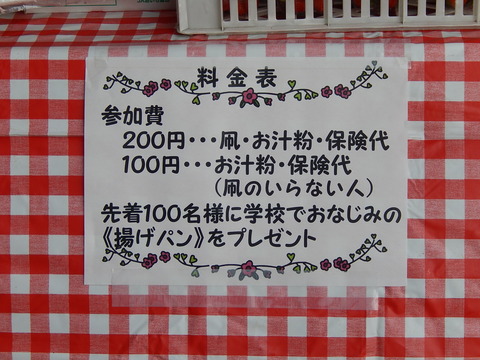 料金表
参加費
200円・・・凧・お汁粉・保険代
100円・・・お汁粉・保険代
（凧のいらない人）
先着100名様に学校でおなじみの
《揚げパン》をプレゼント